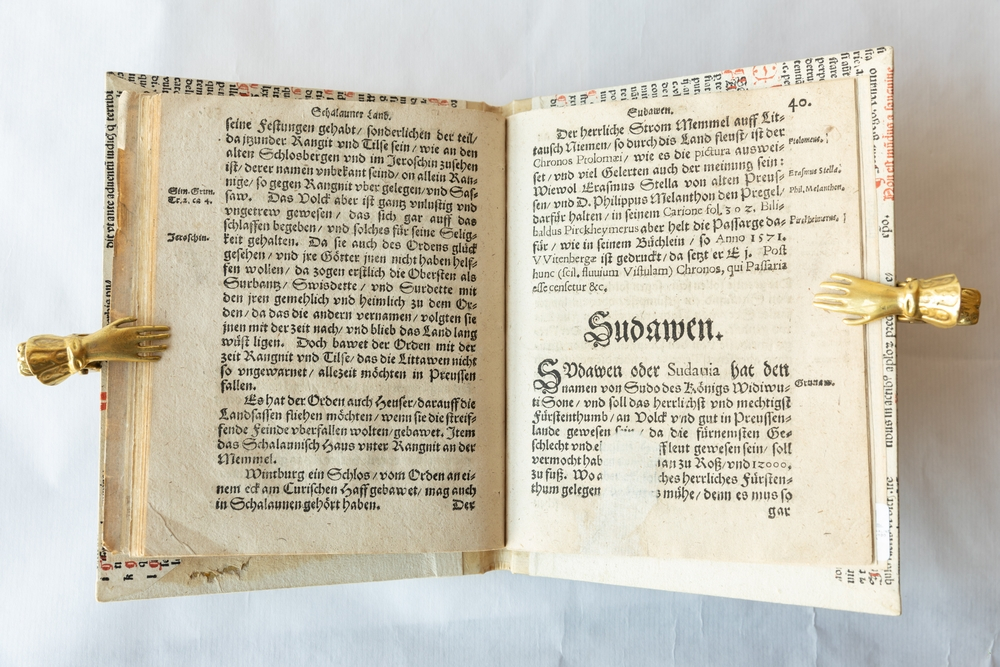 Schalauner Land.
seine Festungen gehabt / sonderlichen der teil /
da jtzunder Rangit vnd Tilse sein / wie an den
alten Schlosbergen vnd im Jeroschin zusehen
ist / derer namen vnbekant seind / on allein Ran-
nige / so gegen Rangnit vber gelegen / vnd Sas-
saw. Das Volck aber ist gantz vnlustig vnd
vngetrew gewesen / das sich gar auff das
schlaffen begeben / vnd solches für seine Selig-
keit gehalten. Da sie auch des Ordens glück
gesehen / vnd jre Götter jnen nicht haben helf-
fen wollen / da zogen erstlich die Obersten als
Surbantz / Swisdette / vnd Surdette mit
den jren gemehlich vnd heimlich zu dem Or-
den / da das die andern vernamen / volgten sie
jnen mit der zeit nach / vnd blieb das Land lang
wüst ligen. Doch bawet der Orden mit der
zeit Rangnit vnd Tilse / das die Littawen nicht
so vngewarnet / allezeit möchten in Preussen
fallen.
Es hat der Orden auch Heuser / darauff die
Landsassen fliehen möchten / wenn sie die streif-
fende Feinde vberfallen wolten / gebawet. Item
das Schalaunisch Haus vnter Rangnit an der
Memmel.
Wintburg ein Schlos / vom Orden an ei-
nem eck am Curischen Haff gebawet / mag auch
in Schalaunen gehört haben. Der
Sim. Grun.
Tr. 2. ca 4.
Jeroschin.
Sudawen. 40.
Der herrliche Strom Memmel auff Lit-
tausch Niemen / so durch dis Land fleust / ist der
Chronos Ptolomæi / wie es die pictura auswei-
set / vnd viel Gelerten auch der meinung sein:
Wiewol Erasmus Stella von alten Preus-
sen / vnd D. Philippus Melanthon den Pregel /
darfür halten / in seinem Carione fol. 302. Bili-
baldus Pirckheymerus aber helt die Passarge da-
für / wie in seinem Büchlein / so Anno 1571.
VVitenbergæ ist gedruckt / da setzt er E j. Post
hunc (scil. fluuium Vistulam) Chronos, qui Passaria
esse censetur &c.
Ptolomeus.
Erasmus Stella.
Phil. Melanthon.
Pirckheimerus.
Sudawen.
SVdawen oder Sudauia hat den
namen von Sudo des Königs Widiwu-
ti Sone / vnd soll das herrlichst vnd mechtigst
Fürstenthumb / an Volck vnd gut in Preussen-
lande gewesen sein / da die fürnemsten Ge-
schlecht vnd e ffleut gewesen sein / soll
vermocht hab an zu Roß / vnd 12000.
zu fuß. Wo a ches herrliches Fürsten-
thum gelegen s mühe / denn es mus so
gar
Grunaw.